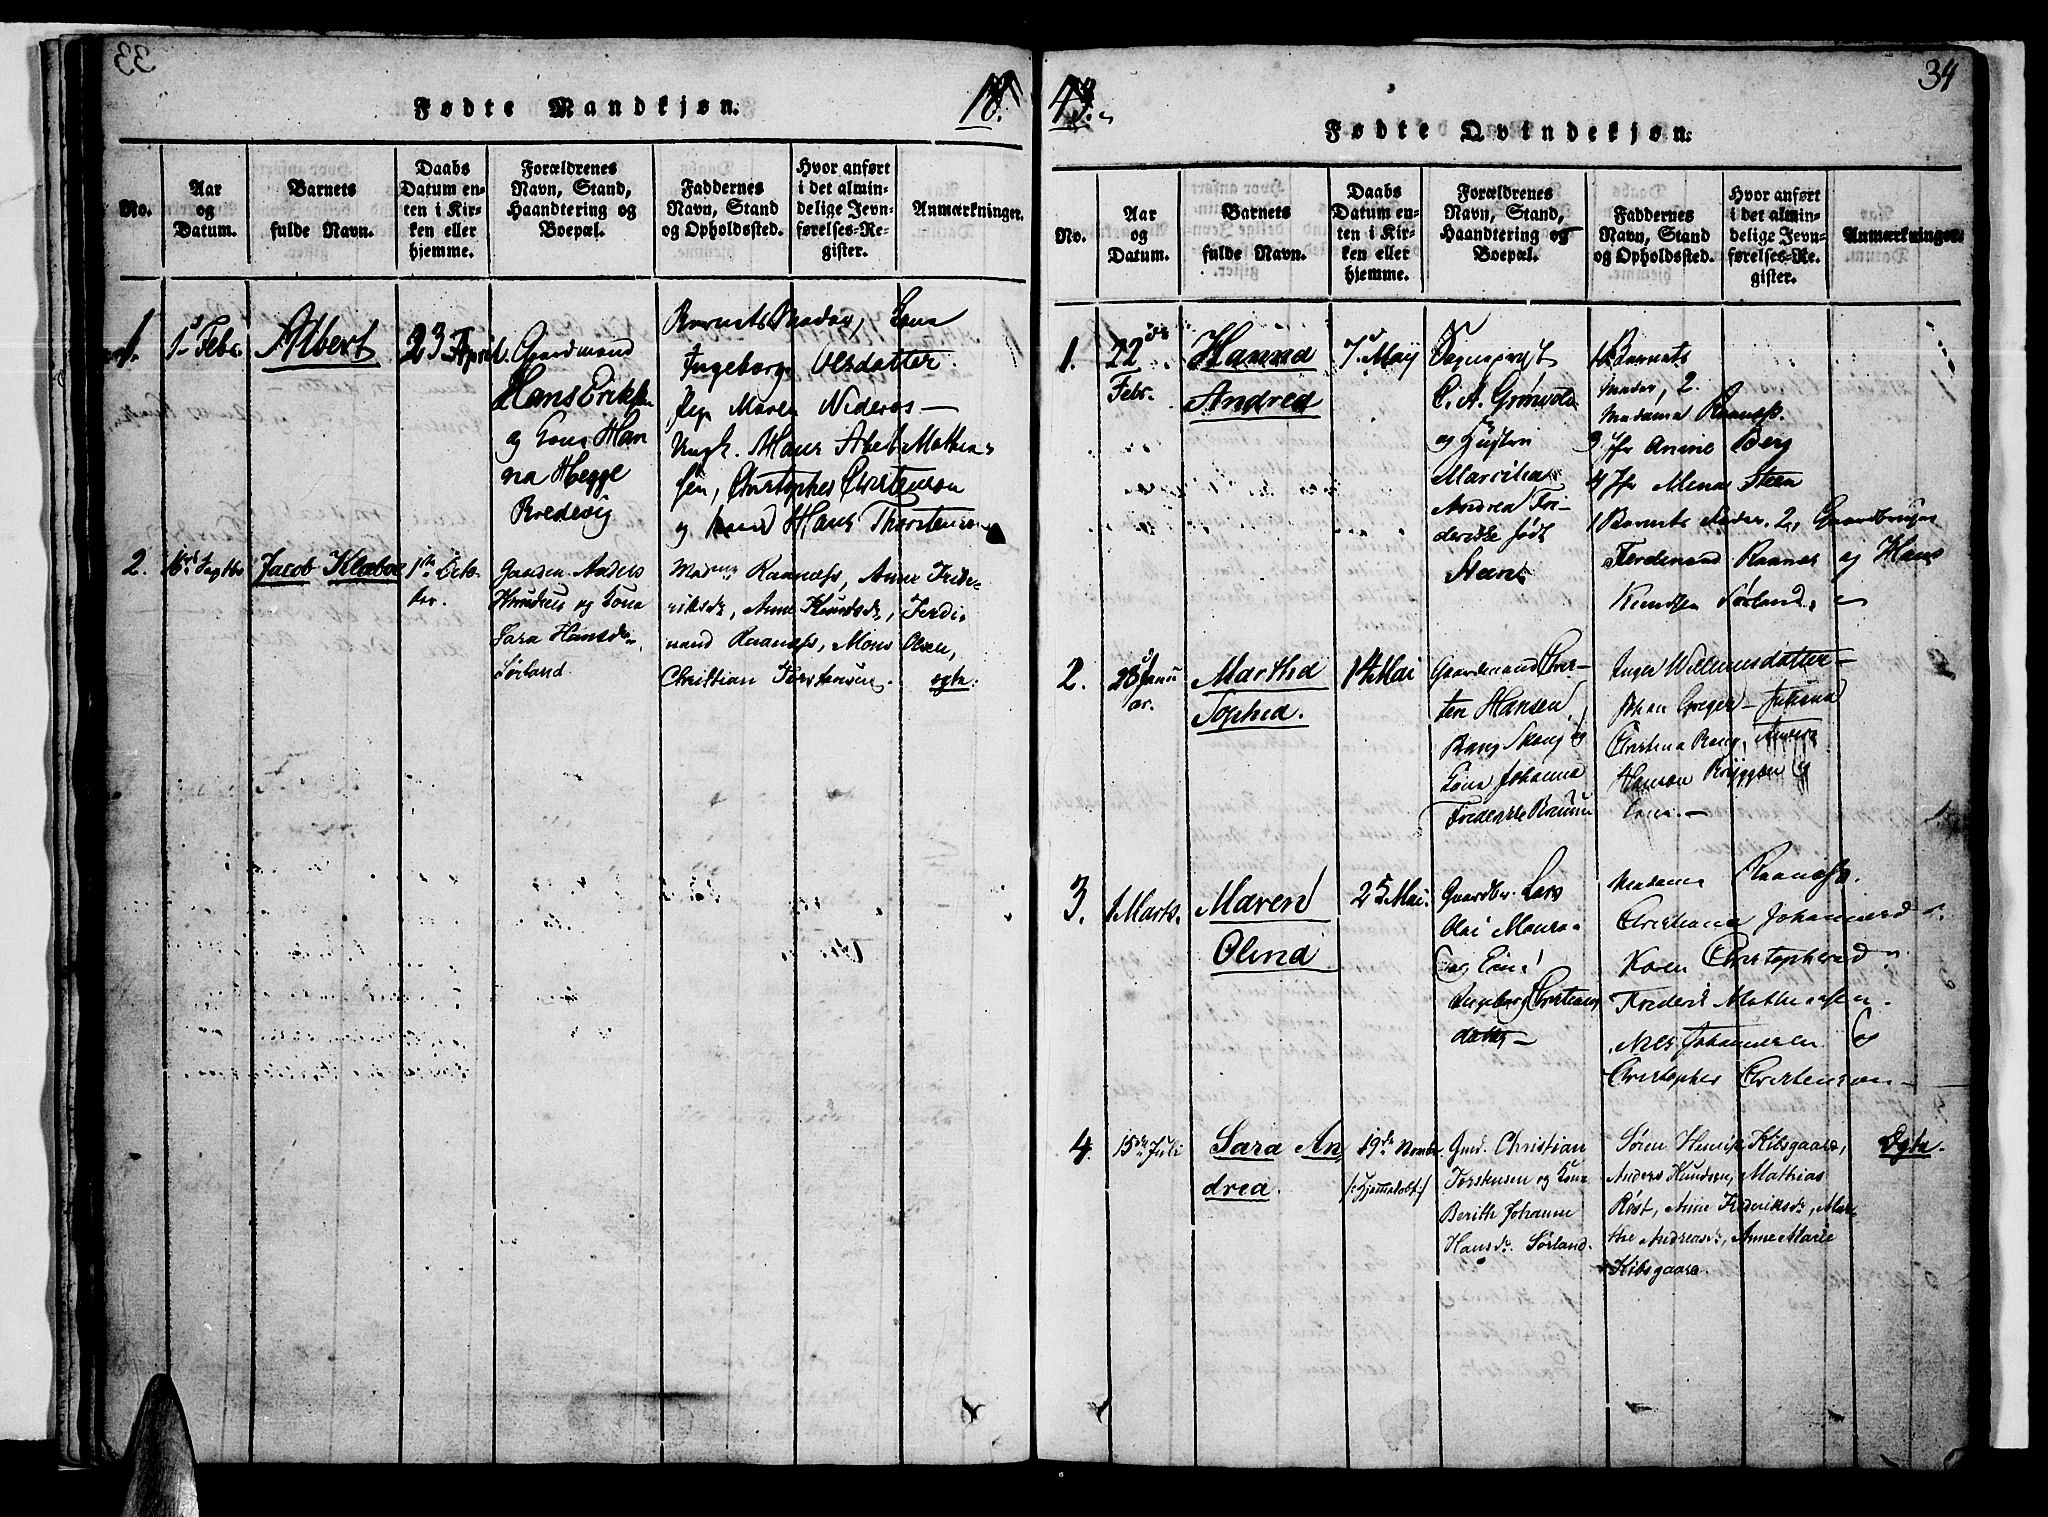 33
Fødte Mandkjøn.
18
No.
Aar og Datum.
Barnets fulde Navn.
Daabs Datum enten i Kirken eller hjemme.
Forældrenes Navn, Stand, Haandtering og Boepæl.
Faddernes Navn, Stand og Opholdssted.
Hvor anført i det almindelige Jevnførelses-Register.
Anmærkninger.
1.
1 Febr.
Albert
23 April
Gaardmand
Hans Erik
og Kone Han
na Hegge
Bredevig
Barnets Moder, Kone
Ingeborg Olsdatter.
Pige Maren Nideros —
Ungk. Hans Abel Mathia-
sen, Christopher Christensen
og Hans Thorstensen
2.
Jacob Klæboe
1ste Octo-
ber.
Gaardm. Anders
Knudsen og Kone
Sara Hansdr.
Sørland
Madme Raanæss, Anne Frede-
riksdr, Anne Knudsdr, Ferdi-
nand Raanæss, Mons Olsen,
Christian Torstensen.
ogte:
34
43.
Fødte Qvindekjøn.
No.
Aar og Datum.
Barnets fulde Navn.
Daabs Datum enten i Kirken eller hjemme.
Forældrenes Navn, Stand, Haandtering og Boepæl.
Faddernes Navn, Stand og Opholdssted.
Hvor anført i det almindelige Jevnførelses-Register.
Anmærkninger.
1.
22
Febr.
Hanna
Andrea
7 May
Sognepræst
C. A. Grönvold
og Hustru
Marcilia
Andrea Fri-
derikke født
Steen
1 Barnets
Moder, 2.
Madame Raanæss.
3 Jfr Anne Berg
4 Jfr Mena Steen
1 Barnets Fader, 2, Gaardbruger
Ferdinand Raanæs og Hans
Knudsen Sørland.
2.
28 Janu
ar.
Martha
Sophia.
14 Mai
Gaardmand Chris-
ten Hansen
Bang Skong og
Kone Johanna
Frederikke
Inger Willumsdatter —
Johan Greger — Juliana
Christina Bang,
Hanson Bryggen og
Kone. —
3.
1 Marts.
Maren
Olina
25 Mai.
Gaardbr. Lars
Olai
og Kone
Ingeborg Christians
datter —
Madame Raanæss.
Christiana Johannesd
Karen Christophersd
Frederik Mathiassen.
Niels Johannesen og
Christopher Christenson —
4.
15de Juli
Sara An
drea.
19de Novmbr.
/:hjemmedøbt:/
Gmd. Christian
Torstensen og Kone
Berith Johanne
Hansdr. Sørland.
Sören Henrik Kibsgaard,
Anders Knudsen, Mathias
Røst, Anne Frederiksdr, Mar-
the Andreasdr, Anne Marie
Kibsgaard.
Ogte.